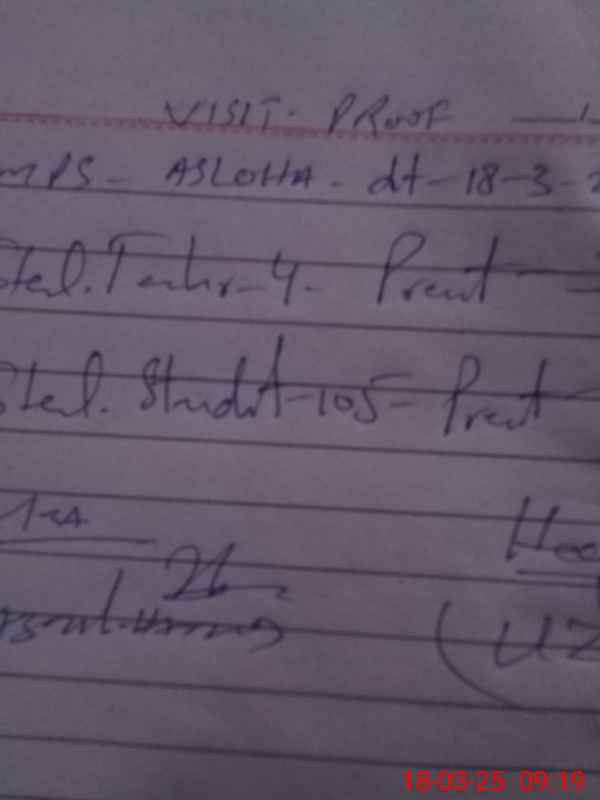 VISIT- PROOF
MPS- ASLOHA- dt-18-3-2
Total. Teachr-4- Present
Total. Studnt-105- Present
Hea
(UZ
18-03-25 09:19